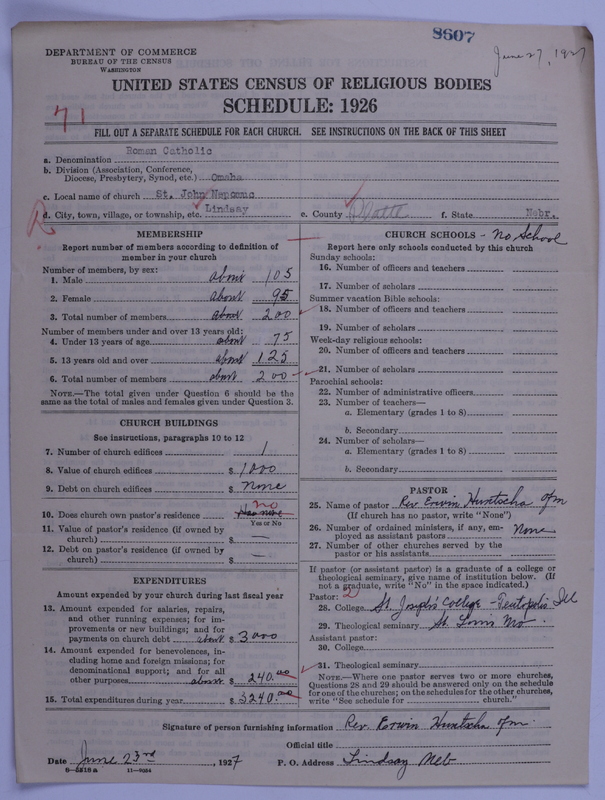 8607
June 27, 1927
DEPARTMENT OF COMMERCE
BUREAU OF THE CENSUS
WASHINGTON
UNITED STATES CENSUS OF RELIGIOUS BODIES
SCHEDULE: 1926
71
FILL OUT A SEPARATE SCHEDULE FOR EACH CHURCH. SEE INSTRUCTIONS ON THE BACK OF THIS SHEET
a. Denomination Roman Catholic
b. Division (Association, Conference,
Diocese, Presbytery, Synod, etc.) Omaha
c. Local name of church St. John Nepomuc
d. City, town, village, or township, etc. Lindsay e. County Platte f. State Nebr.
R
MEMBERSHIP
Report number of members according to definition of
member in your church
Number of members, by sex:
1. Male about 105
2. Female about 95
3. Total number of members about 200
Number of members under and over 13 years old:
4. Under 13 years of age about 75
5. 13 years old and over about 125
6. Total number of members about 200
NOTE.—The total given under Question 6 should be the
same as the total of males and females given under Question 3.
CHURCH BUILDINGS
See instructions, paragraphs 10 to 12
7. Number of church edifices 1
8. Value of church edifices $ 1000
9. Debt on church edifices $ none
10. Does church own pastor's residence no
Yes or No
11. Value of pastor's residence (if owned by
church) $ —
12. Debt on pastor's residence (if owned by
church) $ —
EXPENDITURES
Amount expended by your church during last fiscal year
13. Amount expended for salaries, repairs,
and other running expenses; for im-
provements or new buildings; and for
payments on church debt about $ 3000
14. Amount expended for benevolences, in-
cluding home and foreign missions; for
denominational support; and for all
other purposes about $ 240.00
15. Total expenditures during year $ 3240.00
CHURCH SCHOOLS - No School
Report here only schools conducted by this church
Sunday schools:
16. Number of officers and teachers
17. Number of scholars
Summer vacation Bible schools:
18. Number of officers and teachers
19. Number of scholars
Week-day religious schools:
20. Number of officers and teachers
21. Number of scholars
Parochial schools:
22. Number of administrative officers
23. Number of teachers—
a. Elementary (grades 1 to 8)
b. Secondary
24. Number of scholars—
a. Elementary (grades 1 to 8)
b. Secondary
PASTOR
25. Name of pastor Rev. Erwin Huntscha ofm
(If church has no pastor, write "None")
26. Number of ordained ministers, if any, em-
ployed as assistant pastors None
27. Number of other churches served by the
pastor or his assistants
If pastor (or assistant pastor) is a graduate of a college or
theological seminary, give name of institution below. (If
not a graduate, write "No" in the space indicated.)
Pastor: 2
28. College St. Joseph's College - Teutopolis Ill
29. Theological seminary St Louis Mo.
Assistant pastor:
30. College
31. Theological seminary
NOTE.—Where one pastor serves two or more churches,
Questions 28 and 29 should be answered only on the schedule
for one of the churches; on the schedules for the other churches,
write "See schedule for church."
Signature of person furnishing information Rev. Erwin Huntscha ofm.
Official title
Date June 23rd, 1927 P. O. Address Lindsay Neb
11—9084